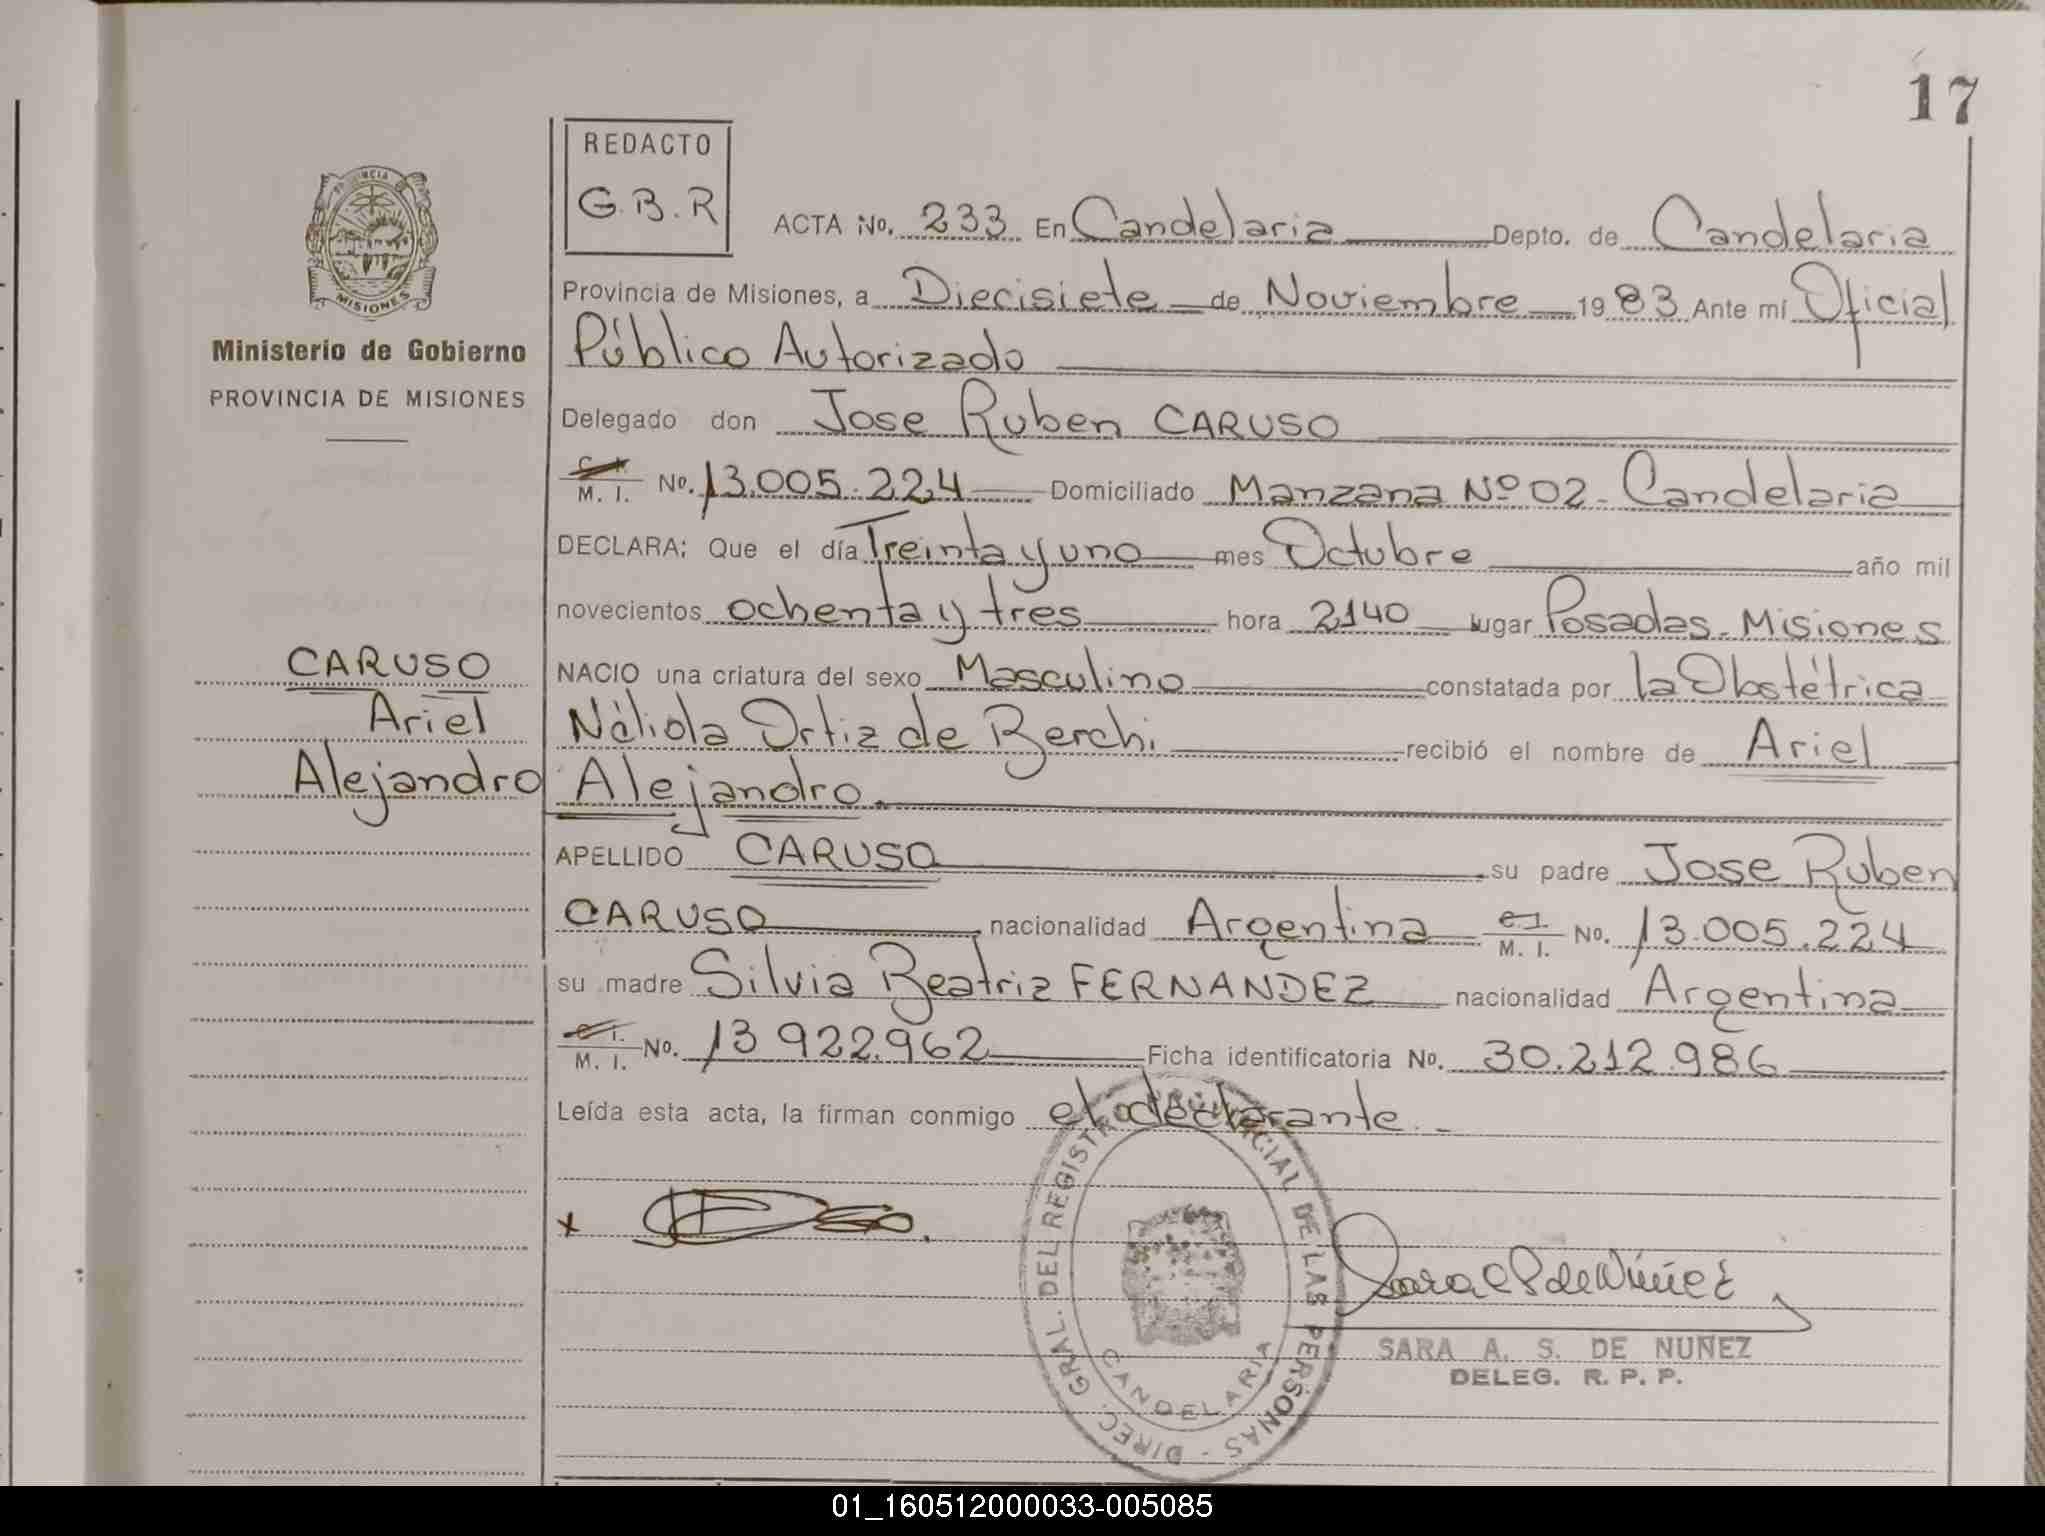 17
REDACTO
G.B.R
PROVINCIA DE
MISIONES
Ministerio de Gobierno
PROVINCIA DE MISIONES
ACTA No. 233 En Candelaria Depto. de Candelaria
Provincia de Misiones, a Diecisiete de Noviembre 1983 Ante mí Oficial
Público Autorizado
Delegado don Jose Ruben CARUSO
C. I.
M. I. No. 13.005.224 Domiciliado Manzana Nº 02 - Candelaria
DECLARA: Que el día Treinta y uno mes Octubre año mil
novecientos ochenta y tres hora 2140 lugar Posadas - Misiones
NACIO una criatura del sexo Masculino constatada por la Obstétrica
Nélida Ortiz de Berchi recibió el nombre de Ariel
Alejandro.
CARUSO
Ariel
Alejandro
APELLIDO CARUSO su padre Jose Ruben
CARUSO nacionalidad Argentina C. I.
M. I. No. 13.005.224
su madre Silvia Beatriz FERNANDEZ nacionalidad Argentina
C. I.
M. I. No. 13 922.962 Ficha identificatoria No. 30.212.986
Leída esta acta, la firman conmigo el declarante. -
x
DIREC. GRAL. DEL REGISTRO PROVINCIAL DE LAS PERSONAS -
CANDELARIA
Sara S de Núñez
SARA A. S. DE NUÑEZ
DELEG. R. P. P.
01_160512000033-005085